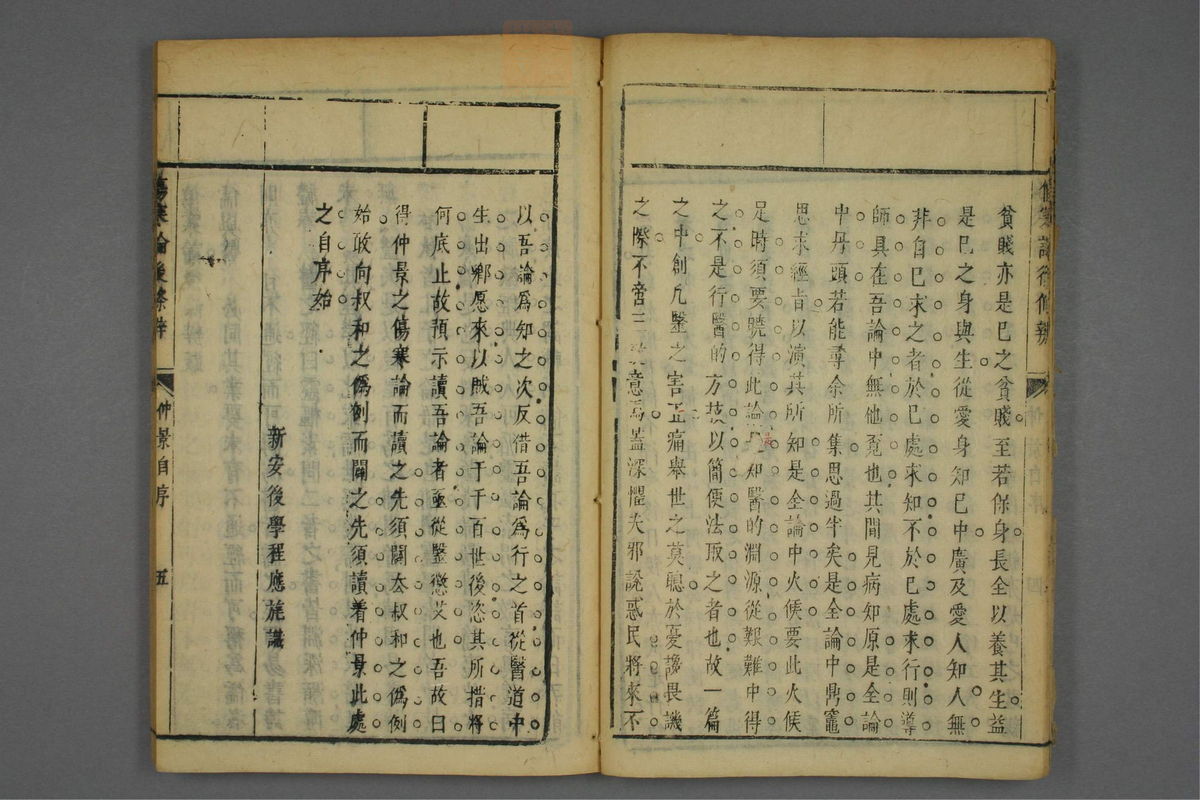 傷寒論後條辨
貧賤亦是已之貧賤至若保身長全以養其生益
是已之身與生從愛身知已中廣及愛人知人無
非自已求之者於已處求知不於已處求行則導
師具在吾論中無他覔也其間見病知原是全論
中丹頭若能尋余所集思過半矣是全論中鼎竈
思求經旨以演其所知是全論中火候要此火候
足時須要曉得此論知醫的淵源從艱難中得
之不是行醫的方技以簡便法取之者也故一篇
之中創凡醫之害正痛舉世之莫聰於憂讒畏譏
之際不啻三致意焉蓋深懼夫邪說惑民將來不
以吾論爲知之次反借吾論爲行之首從醫道中
生出鄉愿來以賊吾論于千百世後恣其所措將
何底止故預示讀吾論者亟從鑒懲艾也吾故曰
得仲景之傷寒論而讀之先須闢去叔和之僞例
始敢向叔和之僞例而闢之先須讀着仲景此處
之自序始
新安後學程應旄識
傷寒論後條辨
仲景自序
五